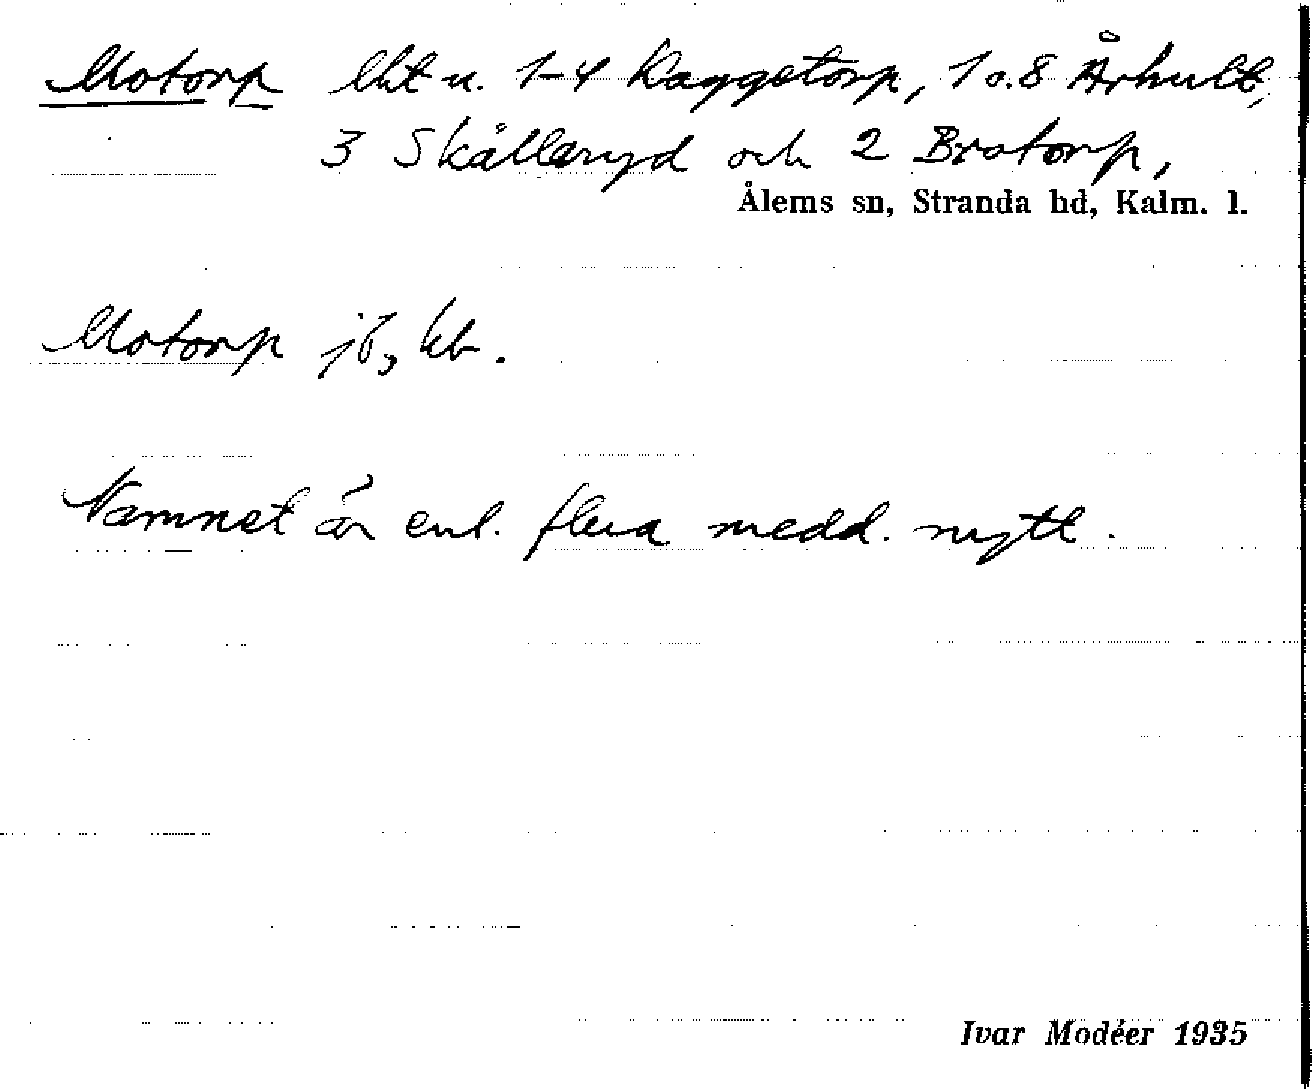 Motorp lht u. 1-4 Raggetorp, 1 o. 8 Århult,
3 Skälleryd och 2 Brotorp,
Ålems sn, Stranda hd, Kalm. l.
Motorp jb, kb.
Namnet är enl. flera medd. nytt.
Ivar Modéer 1935